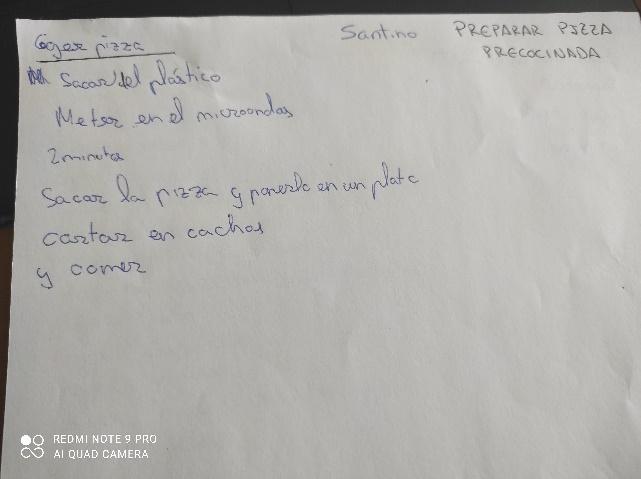 Coger pizza
Santino
PREPARAR PIZZA
PRECOCINADA
Sacar del plástico
Meter en el microondas
2 minutos
Sacar la pizza y ponerla en un plato
cortar en cachos
y comer
REDMI NOTE 9 PRO
AI QUAD CAMERA